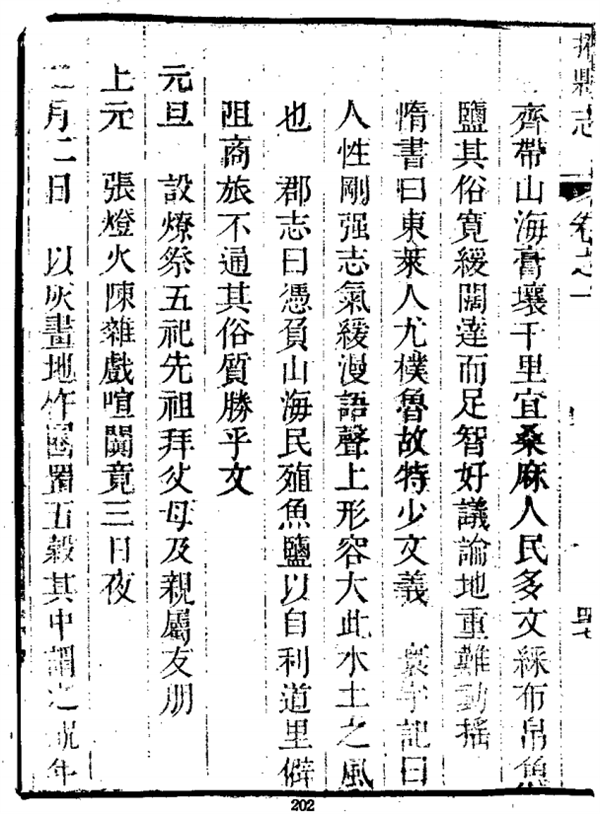 志 卷之一
齊帶山海膏壤千里宜桑麻人民多文綵布帛魚
鹽其俗寬緩闊達而足智好議論地重難動搖
隋書曰東萊人尤樸魯故特少文義 寰宇記曰
人性剛强志氣緩漫語聲上形容大此水土之風
也 郡志曰憑負山海民殖魚鹽以自利道里僻
阻商旅不通其俗質勝乎文
元旦 設燎祭五祀先祖拜父母及親屬友朋
上元 張燈火陳雜戲喧闐竟三日夜
二月二日 以灰畫地作囷置五穀其中謂之
202